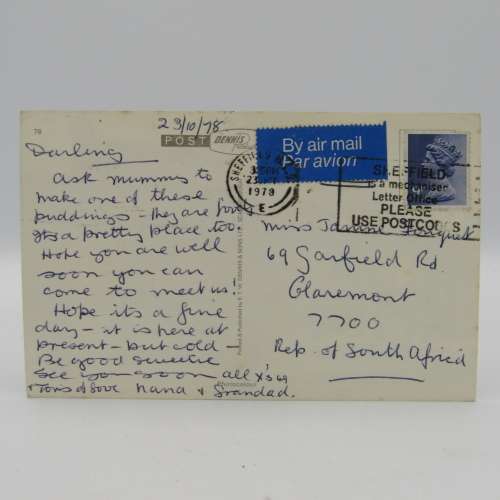 78
23/10/78
POST DENNIS
Darling
Ask mummy to
make one of these
puddings - they are fun
Its a pretty place too.
Hope you are well
soon you can
come to meet us!
Hope its a fine
day - it is here at
present - but cold -
Be good sweetie
See you soon all x's 69
& Tons of love Nana & Grandad.
By air mail
Par avion
SHEFFIELD
1978
E
SHEFFIELD
is a mechanised
Letter Office
PLEASE
USE POSTCODES
Miss Janine
69 Garfield Rd.
Claremont
7700
Rep. of South Africa
Photocolour